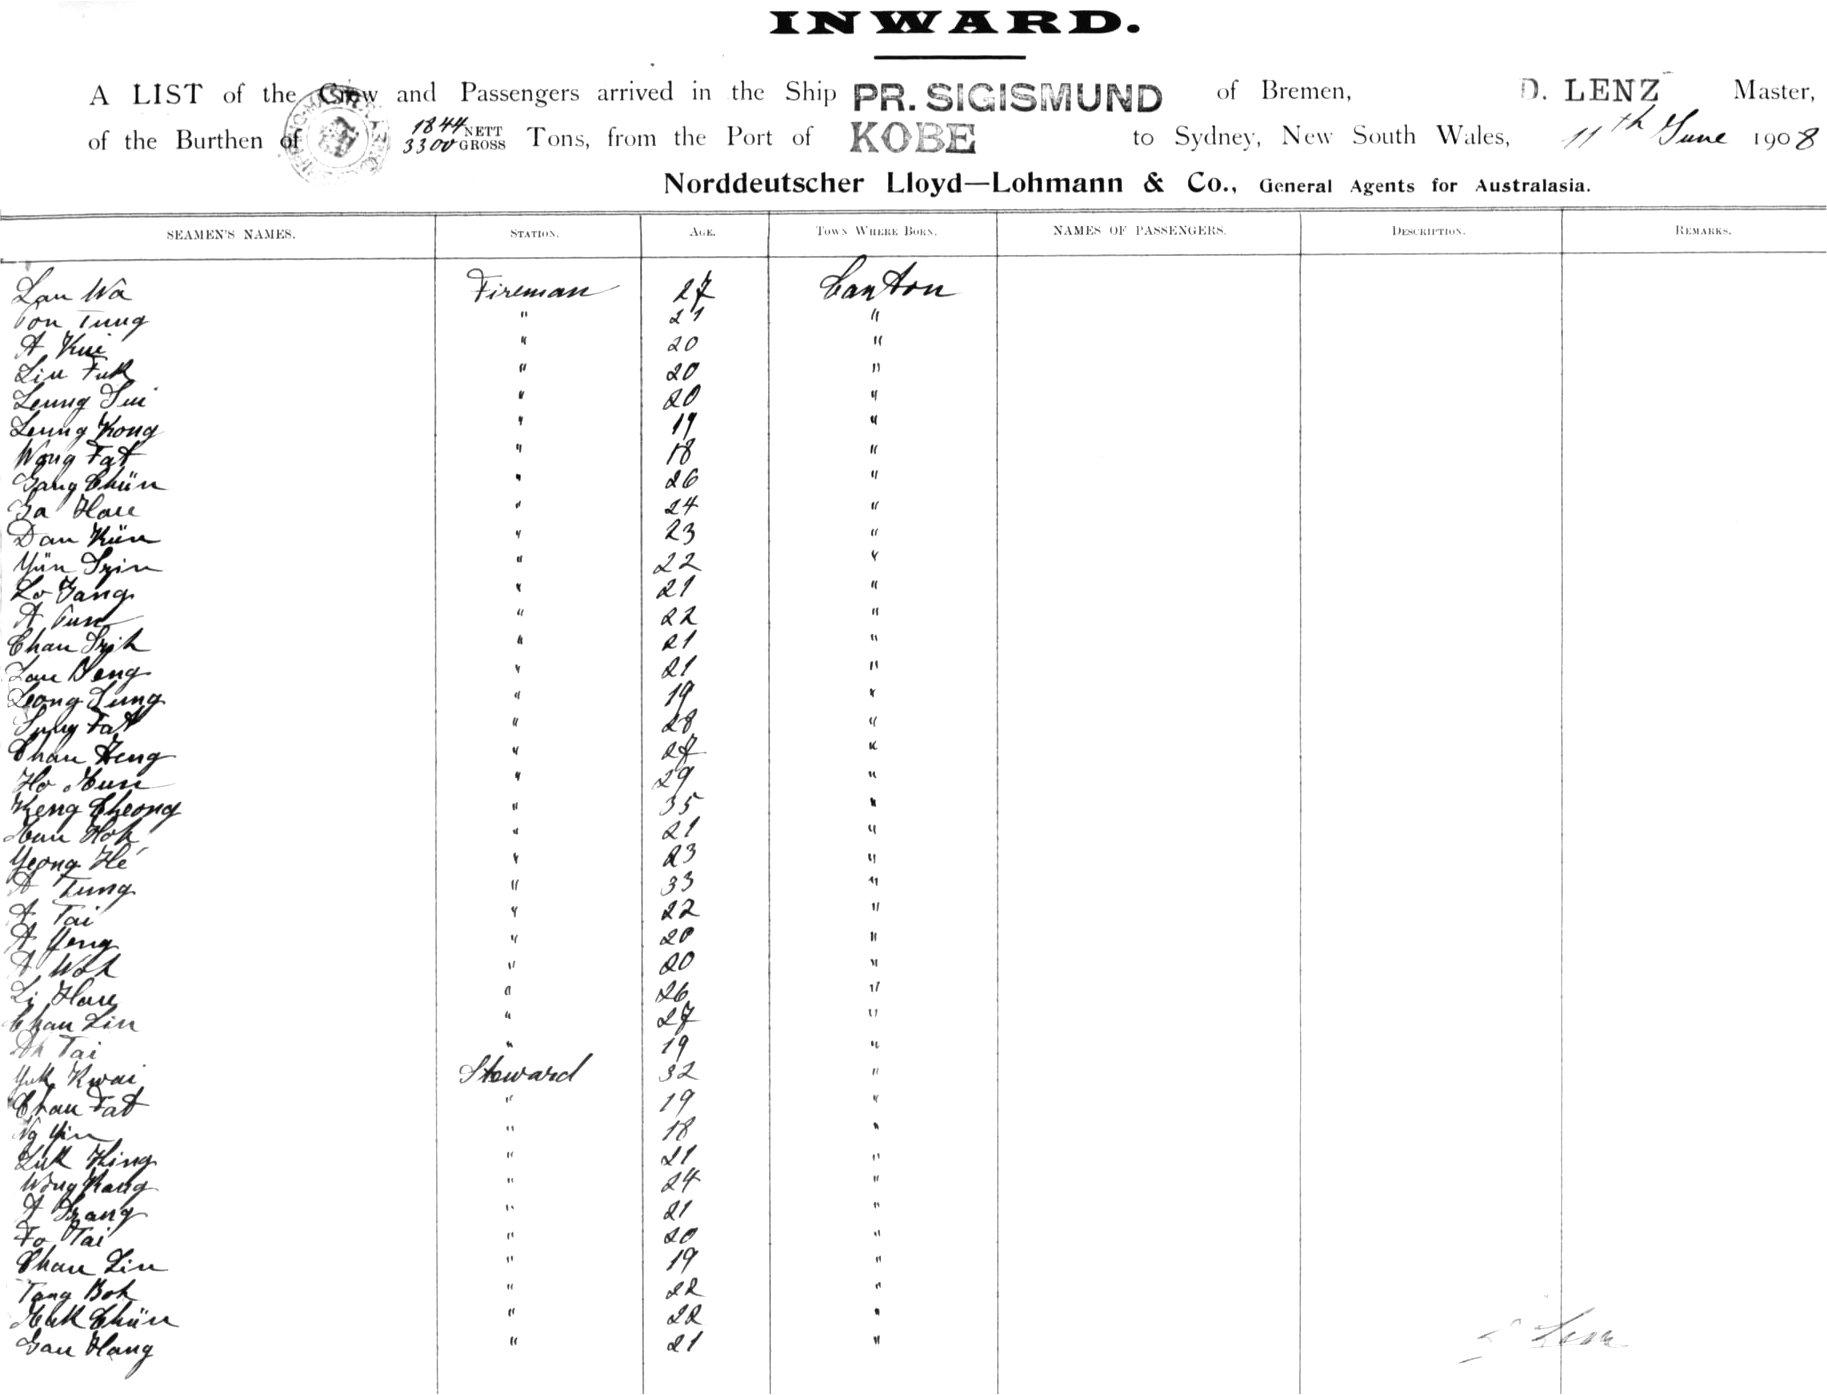 INWARD.
A LIST of the Crew and Passengers arrived in the Ship PR. SIGISMUND of Bremen, D. LENZ Master,
of the Burthen of 1844 NETT 3300 GROSS Tons, from the Port of KOBE to Sydney, New South Wales, 11th June 1908
Norddeutscher Lloyd—Lohmann & Co., General Agents for Australasia.
SEAMEN'S NAMES. STATION. AGE. TOWN WHERE BORN. NAMES OF PASSENGERS. DESCRIPTION. REMARKS.
Lau Wa Fireman 27 Canton
Tung " 21 "
A Kui " 20 "
Liu Fuk " 20 "
Leung Sui " 20 "
Leung Kong " 19 "
Wong Fat " 18 "
Chün " 26 "
" 24 "
Dan Kün " 23 "
Yün " 22 "
Lo " 21 "
A " 22 "
Chan " 21 "
Lau " 21 "
Leong Sung " 19 "
Sung Fat " 28 "
Chan Heng " 27 "
Ho " 29 "
Keng Cheong " 35 "
Hok " 21 "
Yeong Hé " 23 "
A Tung " 33 "
A Tai " 22 "
A Yeng " 20 "
A Wok " 20 "
Li " 26 "
Chan Lin " 27 "
Ah Tai " 19 "
Yuk Kwai Steward 32 "
Chan Fat " 19 "
Ng Yin " 18 "
Luk Hing " 21 "
Wong Kang " 24 "
A " 21 "
Fo Tai " 20 "
Chan Lin " 19 "
Tang Bok " 22 "
Chün " 22 "
Hang " 21 "